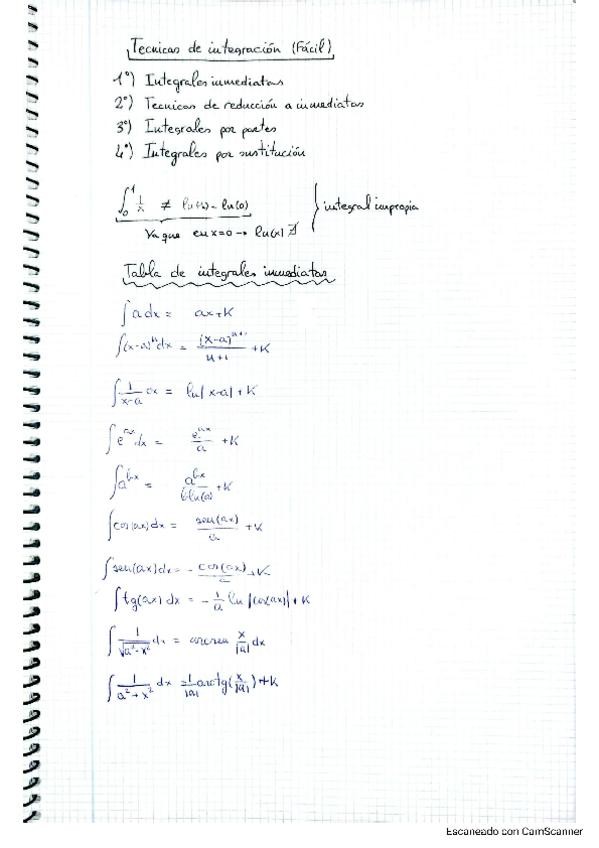 Tecnicas de integración (Fácil)
1º) Integrales inmediatas
2º) Tecnicas de reducción a inmediatas
3º) Integrales por partes
4º) Integrales por sustitución
∫₀¹ 1/x ≠ ln(1) - ln(0) } integral impropia
Ya que en x=0 → ln(x) ∄
Tabla de integrales inmediatas
∫ a dx = ax + K
∫ (x-a)ⁿ dx = (x-a)ⁿ⁺¹/(n+1) + K
∫ 1/(x-a) dx = ln|x-a| + K
∫ e^(ax) dx = e^(ax)/a + K
∫ a^(bx) = a^(bx)/(b ln(a)) + K
∫ cos(ax) dx = sen(ax)/a + K
∫ sen(ax) dx = - cos(ax)/a + K
∫ tg(ax) dx = - 1/a ln|cos(ax)| + K
∫ 1/√(a²-x²) dx = arcsen x/|a| dx
∫ 1/(a²+x²) dx = 1/|a| arctg(x/|a|) + K
Escaneado con CamScanner